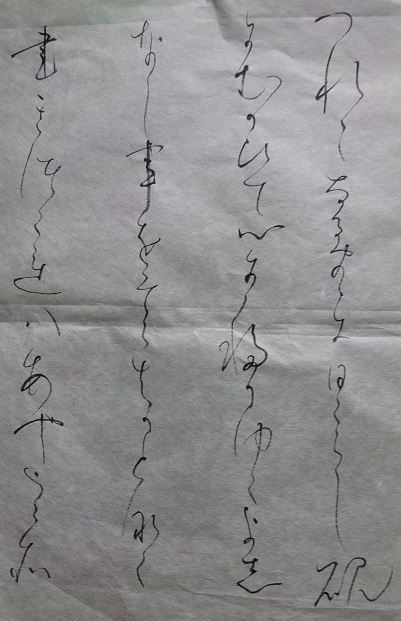 つれ〱なるまゝに日くらし硯
にむかひて心にうつりゆくよし
なし事をそこはかとなく
書きつくれハあやしうこそ